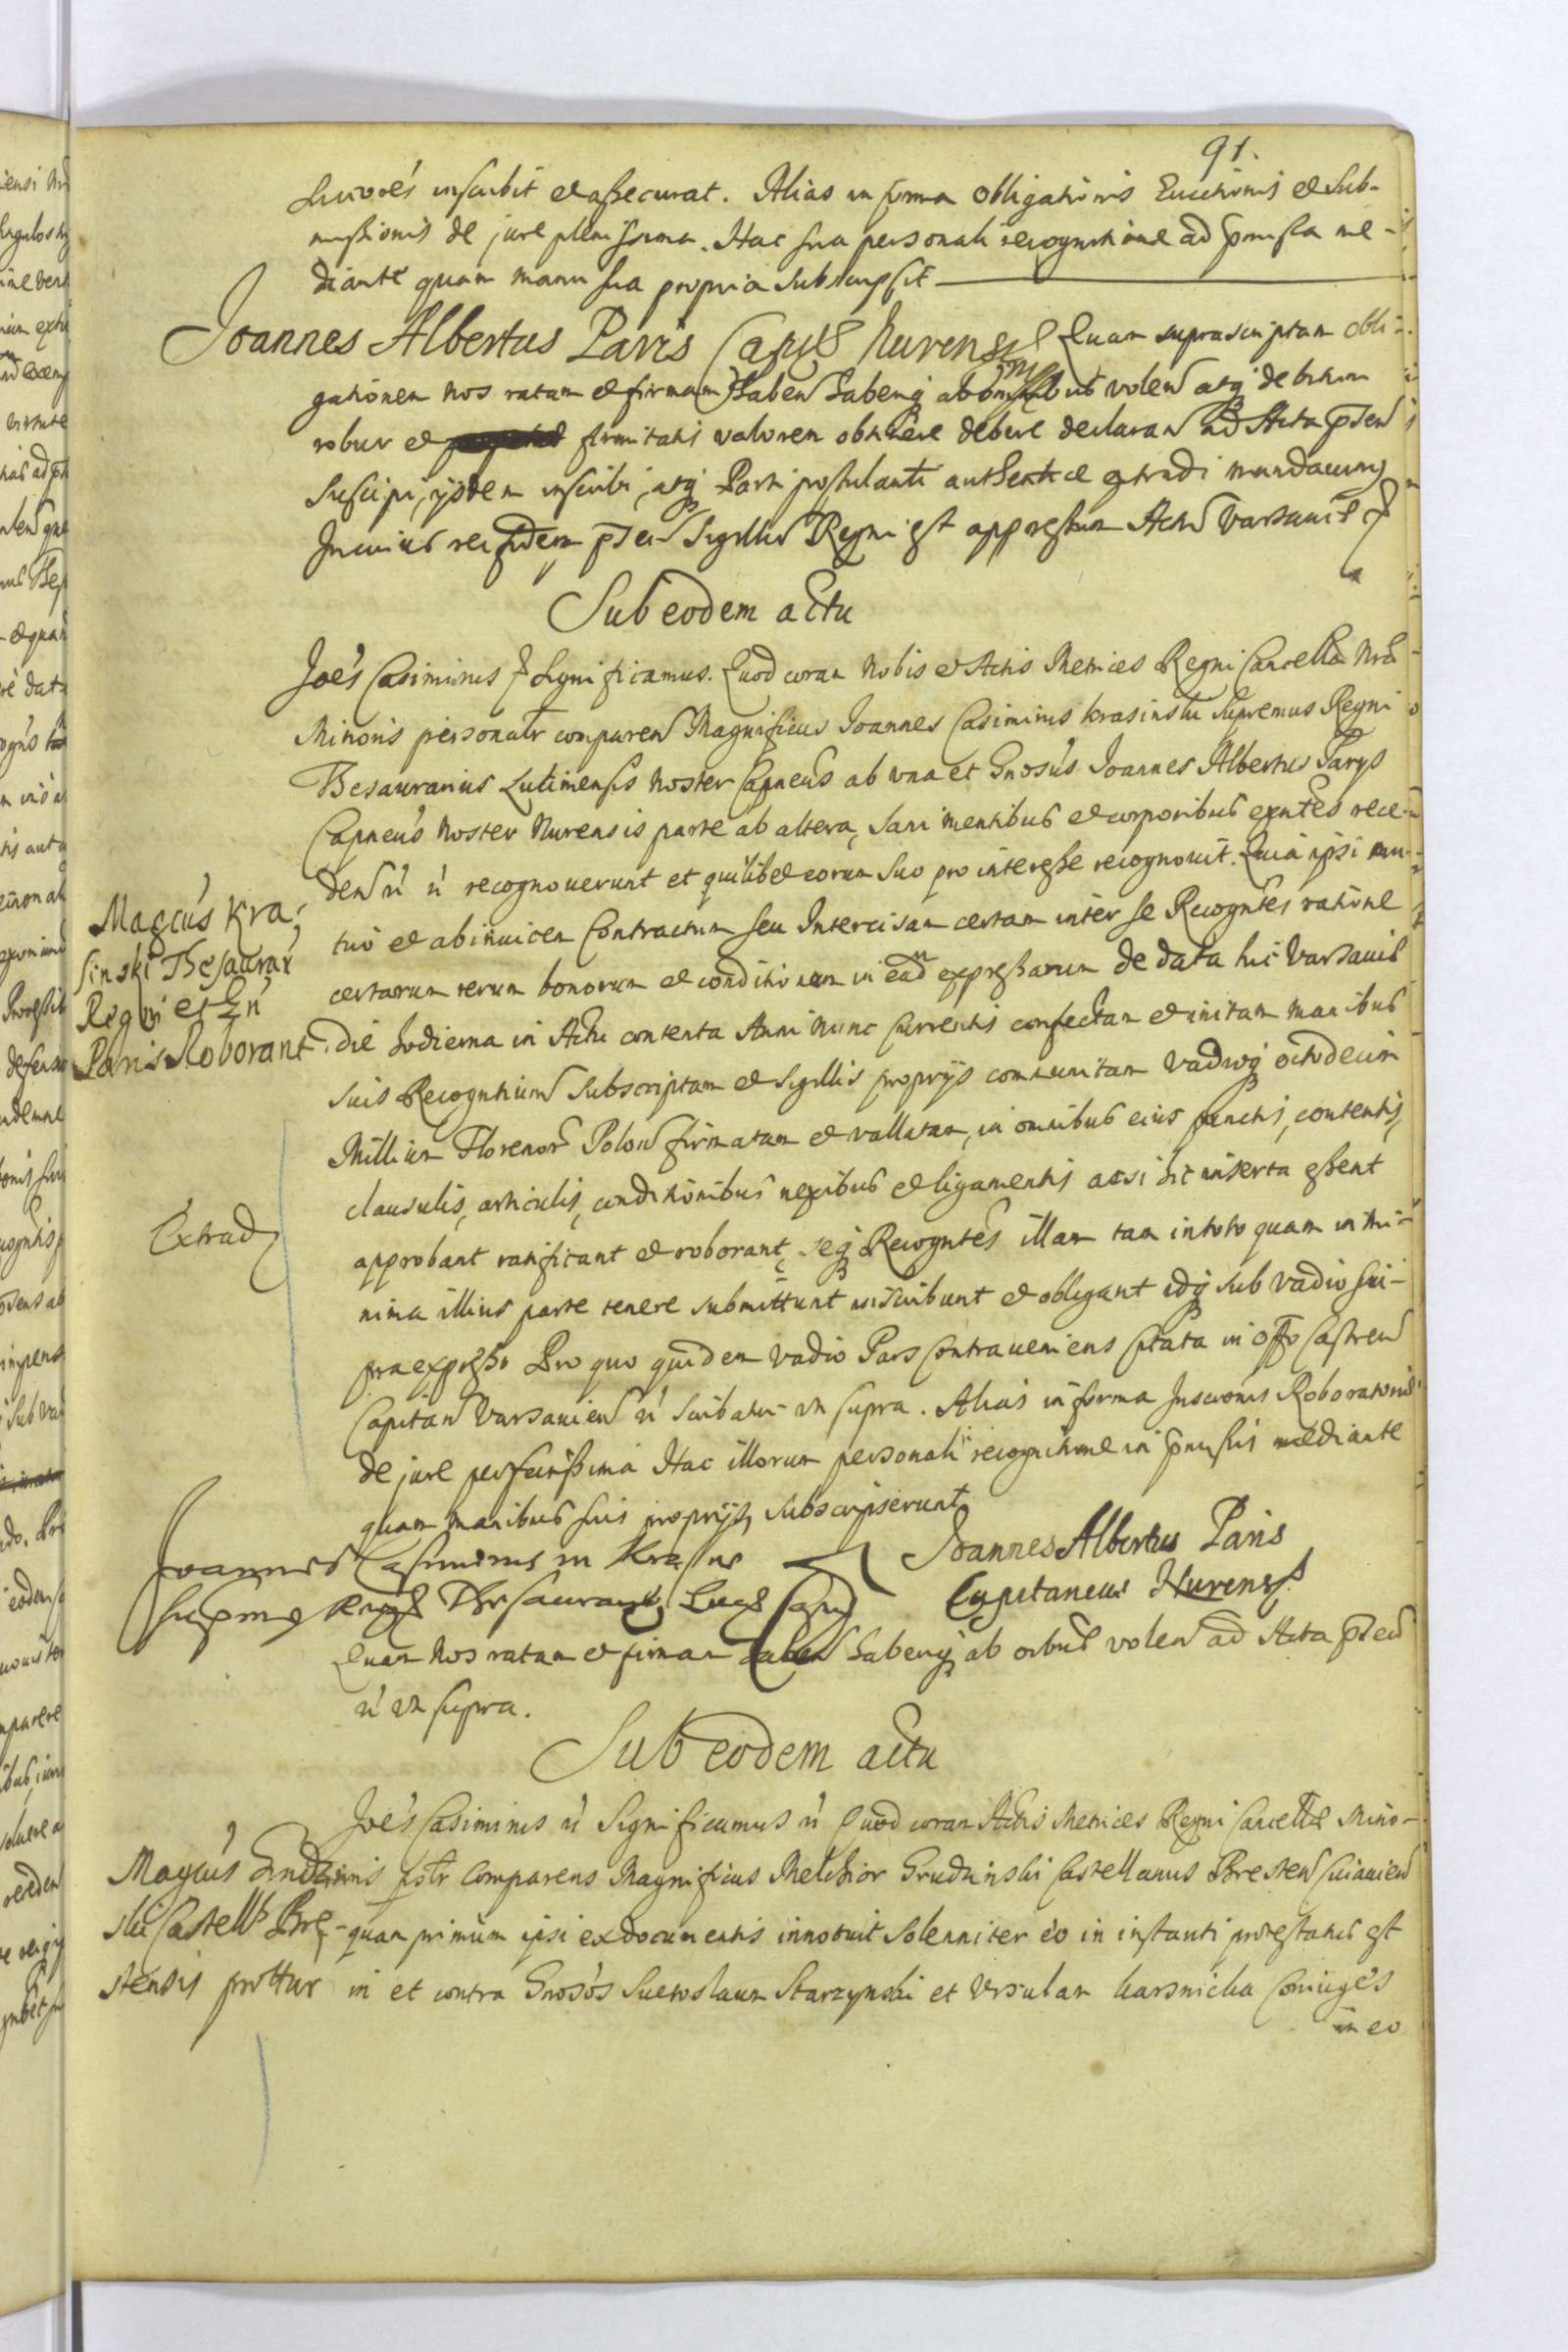 91.
Successores inscribit et assecurat. Alias in forma obligationis Evictionis et Sub-
missionis de jure plenissima. Hac sua personali recognitione ad praemissa me-
diante quam manu sua propria subscripsit
Joannes Albertus Paris Capus Nurensis Quam suprascriptam obli-
gationem nos ratam et firmam haben haberiq ab omnibus volen atq debitum
robur et firmitatis valorem obtinere debere declaran ad Acta pnten
suscipi, ijsdem inscribi, atq Parti postulanti authentice extradi mandavimq
In cuius rei fidem pnten Sigillu Regni est appressum Actu Varsaviae
Sub eodem actu
Joes Casimirus Significamus. Quod coram Nobis et Actis Metrices Regni Cancella Nra
Minoris personalr comparen Magnificus Joannes Casimirus Krasinski Supremus Regni
Thesaurarius Lutinensis Noster Capneus ab una et Gnosus Joannes Albertus Parys
Capneus Noster Nurensis parte ab altera, Sani mentibus et corporibus exntes rece-
den n n recognoverunt et quilibet eorum suo pro interesse recognovit. Quia ipsi mu-
tuo et ab invicem Contractum seu Intercisam certam inter se Recogntes ratione
certarum rerum bonorum et conditionum in ead expressarum de data hic Varsaviae
die hodierna in Actu contenta Anni nunc currentis confectam et initam manibus
suis Recogntium subscriptam et Sigillis proprijs communitam Vadioq octodecim
Millium Florenor Polon firmatam et vallatam, in omnibus eius punctis, contentis,
clausulis, articulis, conditionibus nexibus et ligamentis acsi hic inserta essent
approbant ratificant et roborant, seq Recogntes illam tam in toto quam in mi-
nima illius parte tenere submittunt inscribunt et obligant idq sub vadio su-
praexpresso Pro quo quidem vadio Pars Contraveniens citata in offo Castren
Capitan Varsavien n scribatur ut supra. Alias in forma Inscronis Roboratoriae
de jure perfectissima Hac illorum personali recognitione in praemissis mediante
quam manibus suis proprijs subscripserunt
Magcus Kra-
sinski Thesaurar
Regni et Gn
Paris Roborant
Extrad
Joannes Casimirus in Krasne
Supremq Regni Thesaurariq Capn
Joannes Albertus Paris
Capitaneus Nurensis
Quam Nos ratam et firmam haben haberiq ab oibus volen ad Acta pnten
n ut supra.
Sub eodem actu
Joes Casimirus n Significamus n Quod coram Actis Metrices Regni Cancellae Mino-
ris psolr Comparens Magnificus Melchior Grudzinski Castellanus Bresten Cuiavien
quam primum ipsi ex documentis innotuit solenniter eo in instanti protestatus est
in et contra Gnosos Suetoslaum Starzynski et Ursulam Karsnicka Coniuges
Magcus Grudzin-
ski Castells Bre-
stensis prottur
in eo